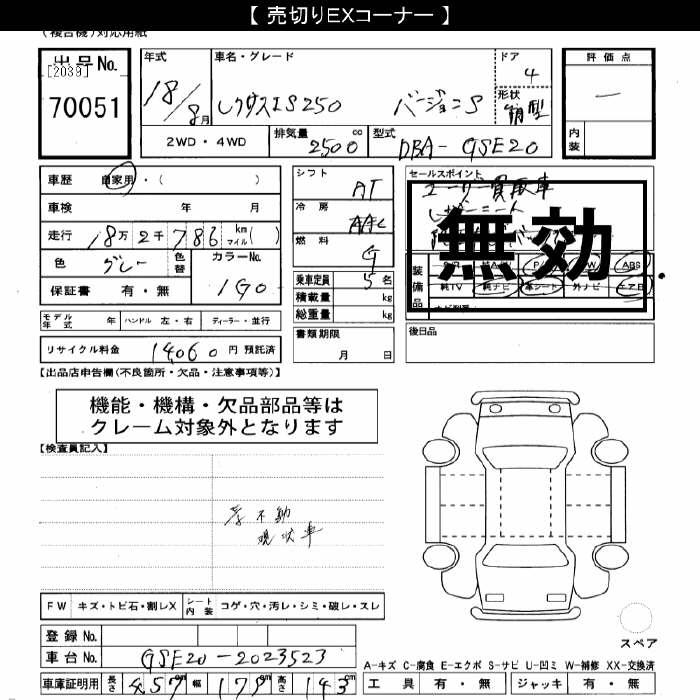 【 売切りEXコーナー 】
(複合機)対応用紙
出品No.
[2039]
70051
年式
18/8月
車名・グレード
レクサスIS250 バージョンS
ドア
4
形状
箱型
評価点
内装
2WD・4WD
排気量 2500 cc
型式 DBA-GSE20
車歴 自家用・( )
車検 年 月
走行 18万2千786 km マイル( )
色 グレー 色替 カラーNo. 1G0
保証書 有・無
モデル年式 年 ハンドル 左・右 ディーラー・並行
リサイクル料金 14060 円 預託済
シフト AT
冷房 AAC
燃料 G
乗車定員 5 名
積載量 kg
総重量 kg
書類期限
月 日
セールスポイント
ユーザー買取車
無効
装備品
ABS
純TV 純ナビ 革シート 外ナビ エアB
後日品
【出品店申告欄(不良箇所・欠品・注意事項等)】
機能・機構・欠品部品等は
クレーム対象外となります
【検査員記入】
不動
現状車
FW キズ・トビ石・割レX シート内装 コゲ・穴・汚レ・シミ・破レ・スレ
登録No.
車台No. GSE20-2023523
車庫証明用 長さ 457 cm 幅 179 cm 高さ 143 cm
スペア
A-キズ C-腐食 E-エクボ S-サビ U-凹ミ W-補修 XX-交換済
工具 有・無 ジャッキ 有・無